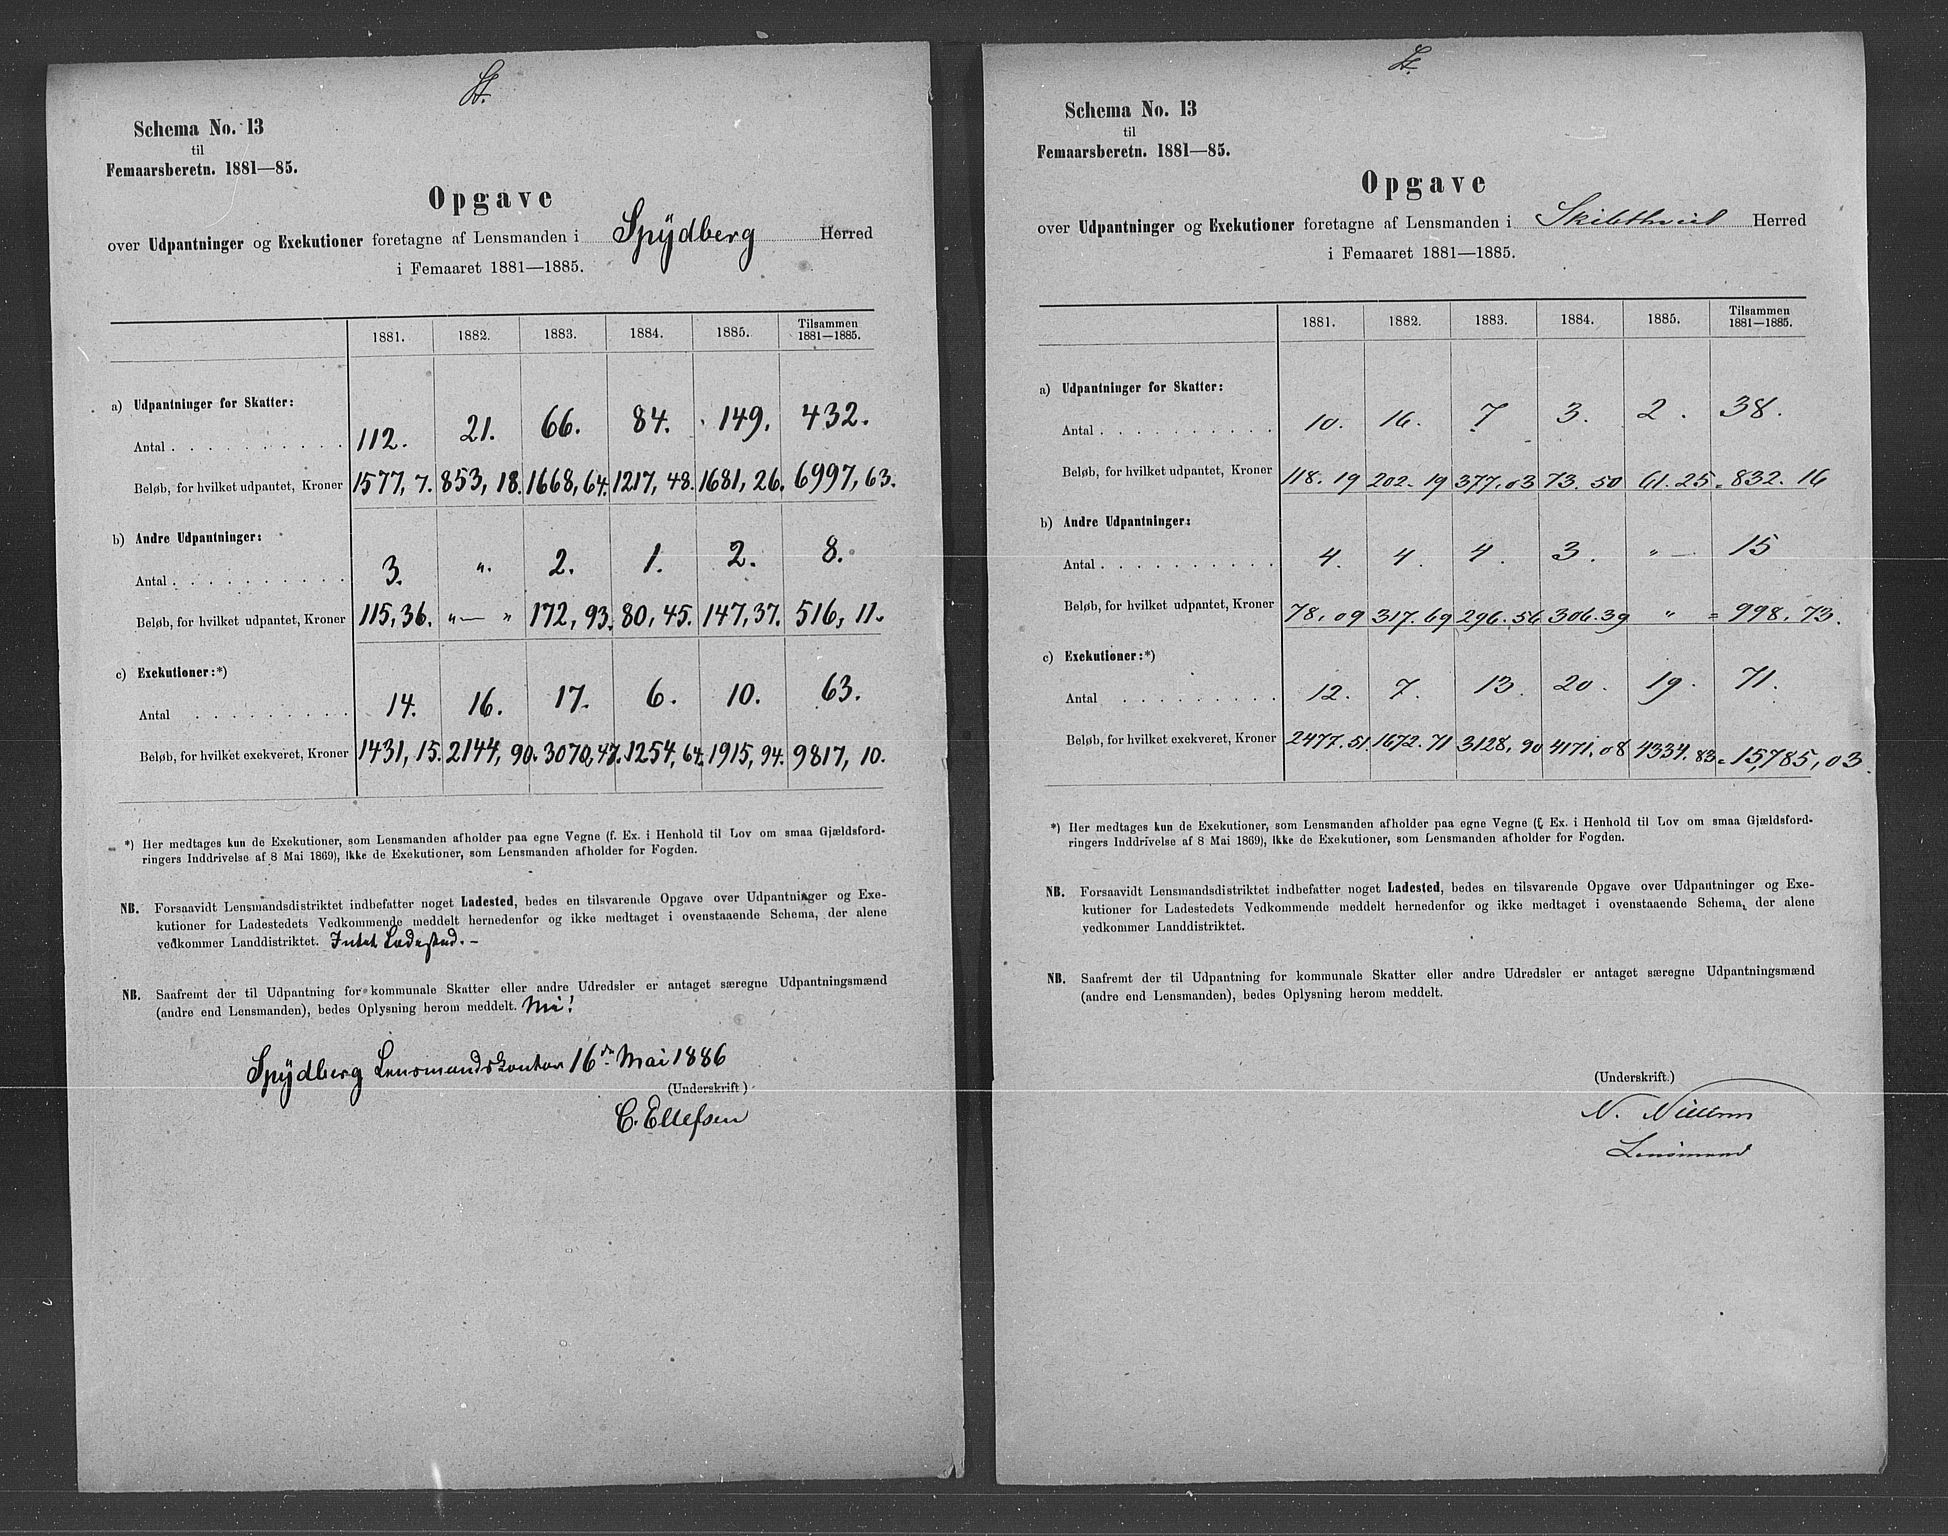 Schema No. 13
til
Femaarsberetn. 1881—85.
Opgave
over Udpantninger og Exekutioner foretagne af Lensmanden i Spÿdberg Herred
i Femaaret 1881—1885.
1881. 1882. 1883. 1884. 1885. Tilsammen 1881—1885.
a) Udpantninger for Skatter:
Antal . . . . . . . . . . 112. 21. 66. 84. 149. 432.
Beløb, for hvilket udpantet, Kroner 1577,7. 853,18. 1668,64. 1217,48. 1681,26. 6997,63.
b) Andre Udpantninger:
Antal . . . . . . . . . . 3. „. 2. 1. 2. 8.
Beløb, for hvilket udpantet, Kroner 115,36. „ — „ 172,93. 80,45. 147,37. 516,11.
c) Exekutioner:*)
Antal . . . . . . . . . 14. 16. 17. 6. 10. 63.
Beløb, for hvilket exekveret, Kroner 1431,15. 2144,90. 3070,47. 1254,64. 1915,94. 9817,10.
*) Her medtages kun de Exekutioner, som Lensmanden afholder paa egne Vegne (f. Ex. i Henhold til Lov om smaa Gjældsford-
ringers Inddrivelse af 8 Mai 1869), ikke de Exekutioner, som Lensmanden afholder for Fogden.
NB. Forsaavidt Lensmandsdistriktet indbefatter noget Ladested, bedes en tilsvarende Opgave over Udpantninger og Exe-
kutioner for Ladestedets Vedkommende meddelt hernedenfor og ikke medtaget i ovenstaaende Schema, der alene
vedkommer Landdistriktet. Intet Ladested. –
NB. Saafremt der til Udpantning for kommunale Skatter eller andre Udredsler er antaget særegne Udpantningsmænd
(andre end Lensmanden), bedes Oplysning herom meddelt.
Spÿdberg Lensmandskontor 16de Mai 1886
(Underskrift)
C. Ellefsen
Schema No. 13
til
Femaarsberetn. 1881—85.
Opgave
over Udpantninger og Exekutioner foretagne af Lensmanden i Skibthvet Herred
i Femaaret 1881—1885.
1881. 1882. 1883. 1884. 1885. Tilsammen 1881—1885.
a) Udpantninger for Skatter:
Antal . . . . . . . . . . 10. 16. 7 3. 2. 38.
Beløb, for hvilket udpantet, Kroner 118.19 202.19 377.03 73.50 61.25 = 832.16
b) Andre Udpantninger:
Antal . . . . . . . . . . 4. 4. 4. 3. „ — 15
Beløb, for hvilket udpantet, Kroner 78.09 317.69 296.56 306.39 „ = 998.73.
c) Exekutioner:*)
Antal . . . . . . . . . 12. 7. 13. 20. 19. 71.
Beløb, for hvilket exekveret, Kroner 2477.51 1672.71 3128,90 4171.08 4334.83 = 15,785,03.
*) Her medtages kun de Exekutioner, som Lensmanden afholder paa egne Vegne (f. Ex. i Henhold til Lov om smaa Gjældsford-
ringers Inddrivelse af 8 Mai 1869), ikke de Exekutioner, som Lensmanden afholder for Fogden.
NB. Forsaavidt Lensmandsdistriktet indbefatter noget Ladested, bedes en tilsvarende Opgave over Udpantninger og Exe-
kutioner for Ladestedets Vedkommende meddelt hernedenfor og ikke medtaget i ovenstaaende Schema, der alene
vedkommer Landdistriktet.
NB. Saafremt der til Udpantning for kommunale Skatter eller andre Udredsler er antaget særegne Udpantningsmænd
(andre end Lensmanden), bedes Oplysning herom meddelt.
(Underskrift.)
N. Nielsen
Lensmand